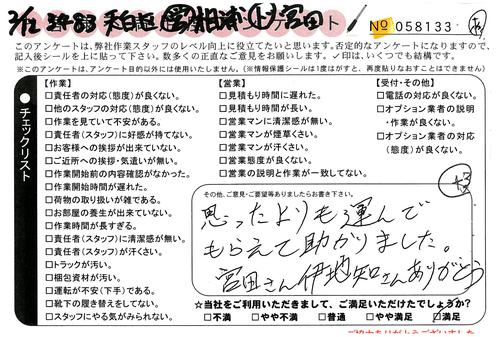 3/12
宮田
No 058133
このアンケートは、弊社作業スタッフのレベル向上に役立てたいと思います。否定的なアンケートになりますので、
記入後シールを上に貼って下さい。数多くの正直なご意見をお願いします。✓印は、いくつでも結構です。
※このアンケートは、アンケート目的以外には使用いたしません。(※情報保護シールは1度はがすと、再度貼りなおすことはできません)
チェックリスト
【作業】
□責任者の対応(態度)が良くない。
□他のスタッフの対応(態度)が良くない。
□作業を見ていて不安がある。
□責任者(スタッフ)に好感が持てない。
□お客様への挨拶が出来ていない。
□ご近所への挨拶・気遣いが無い。
□作業開始前の内容確認がなかった。
□作業開始時間が遅れた。
□荷物の取り扱いが雑である。
□お部屋の養生が出来ていない。
□作業時間が長すぎる。
□責任者(スタッフ)に清潔感が無い。
□責任者(スタッフ)が汗くさい。
□トラックが汚い。
□梱包資材が汚い。
□運転が不安(下手)である。
□靴下の履き替えをしてない。
□スタッフにやる気がみられない。
【営業】
□見積もり時間に遅れた。
□見積もり時間が長い。
□営業マンに清潔感が無い。
□営業マンが煙草くさい。
□営業マンが汗くさい。
□営業態度が良くない。
□営業の説明と作業が一致してない。
【受付・その他】
□電話の対応が良くない。
□オプション業者の説明
・作業が良くない。
□オプション業者の対応
(態度)が良くない。
その他、ご意見・ご要望等ありましたらお書き下さい。
思ったよりも運んで
もらえて助かりました。
宮田さん伊地知さんありがとう
☆当社をご利用いただきまして、ご満足いただけたでしょうか?
□不満 □やや不満 □普通 □やや満足 ☑満足
ご協力ありがとうございました